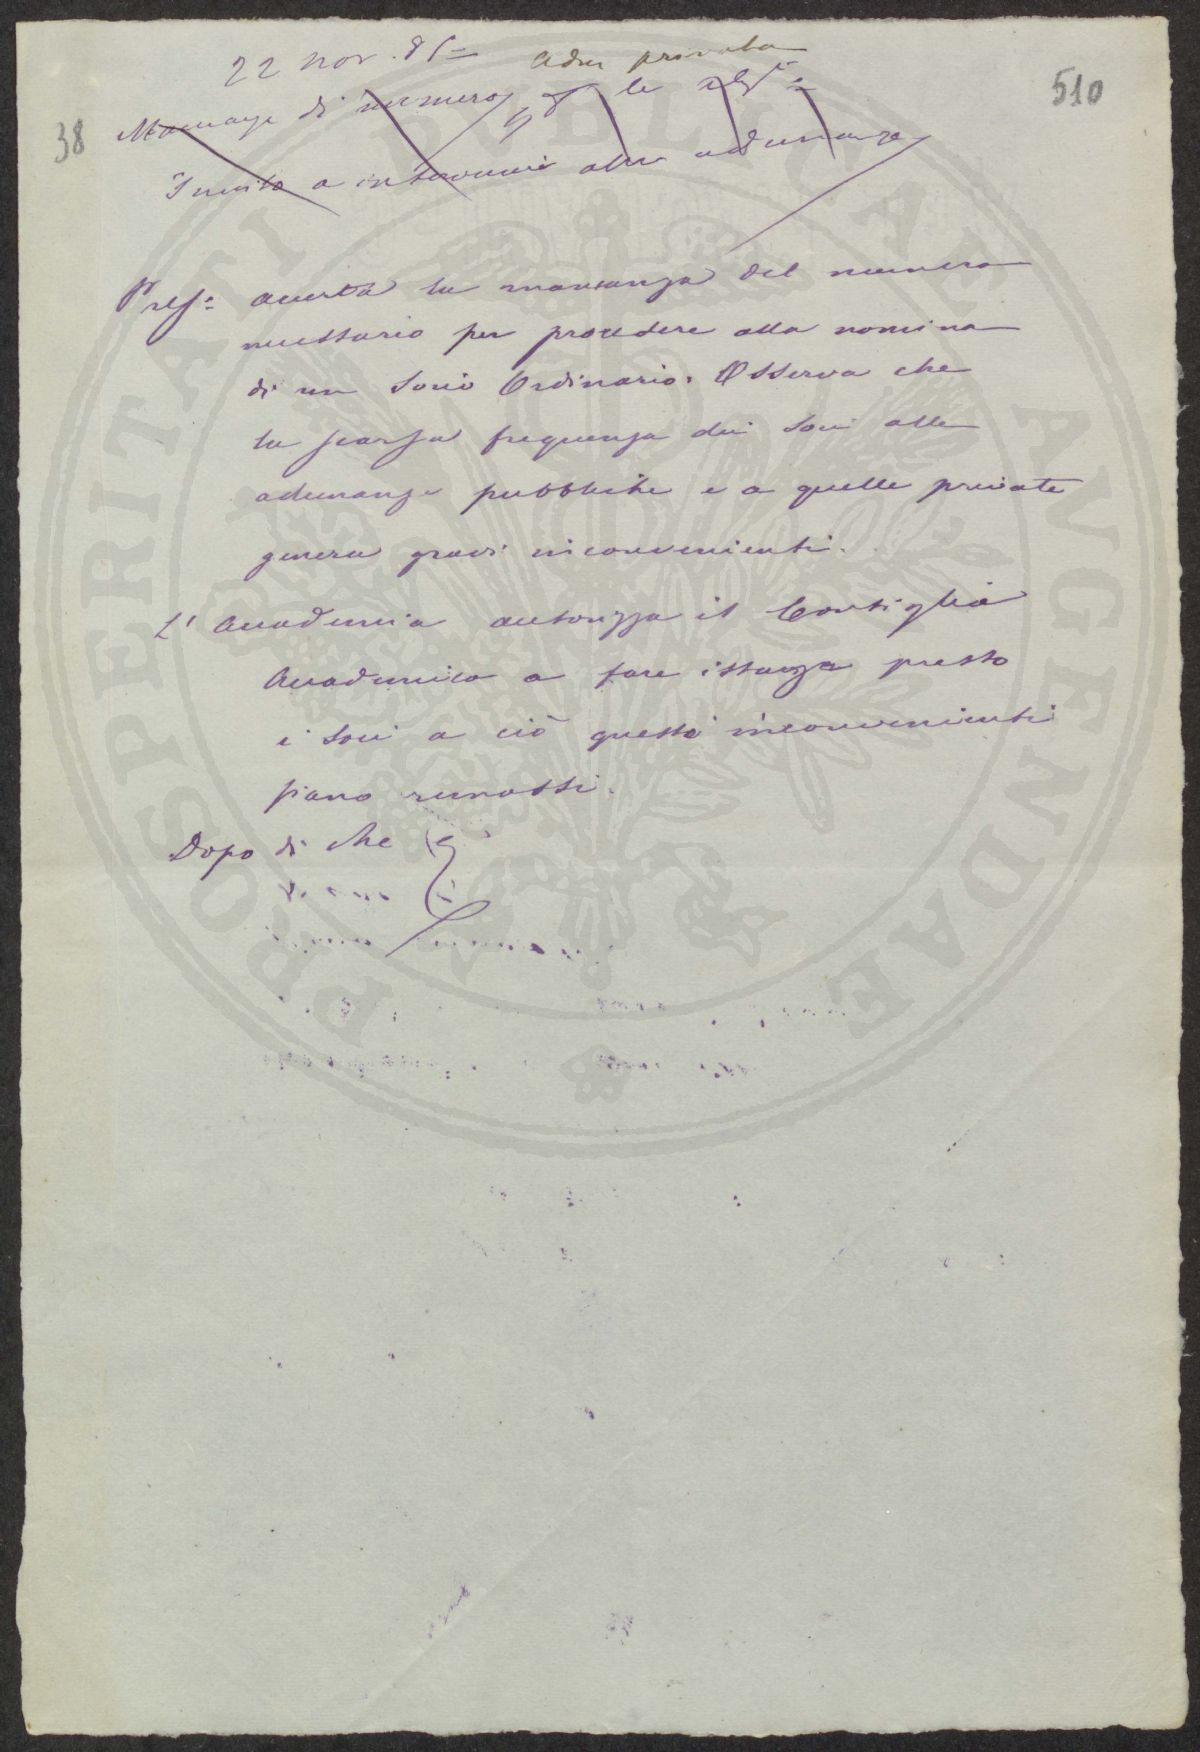 22 Nov. 85 Adun privata
510
38 Mancanza di numero per le
Invito a intervenire alle adunanze
Pres: avverte la mancanza del numero
necessario per procedere alla nomina
di un Socio Ordinario. Osserva che
la scarsa frequenza dei Soci alle
adunanze pubbliche e a quelle private
genera gravi inconvenienti.
L'Accademia autorizza il Consiglio
Accademico a fare istanza presso
i Soci a ciò questi inconvenienti
siano rimossi.
Dopo di che
PROSPERITATI PUBLICAE AVGENDAE